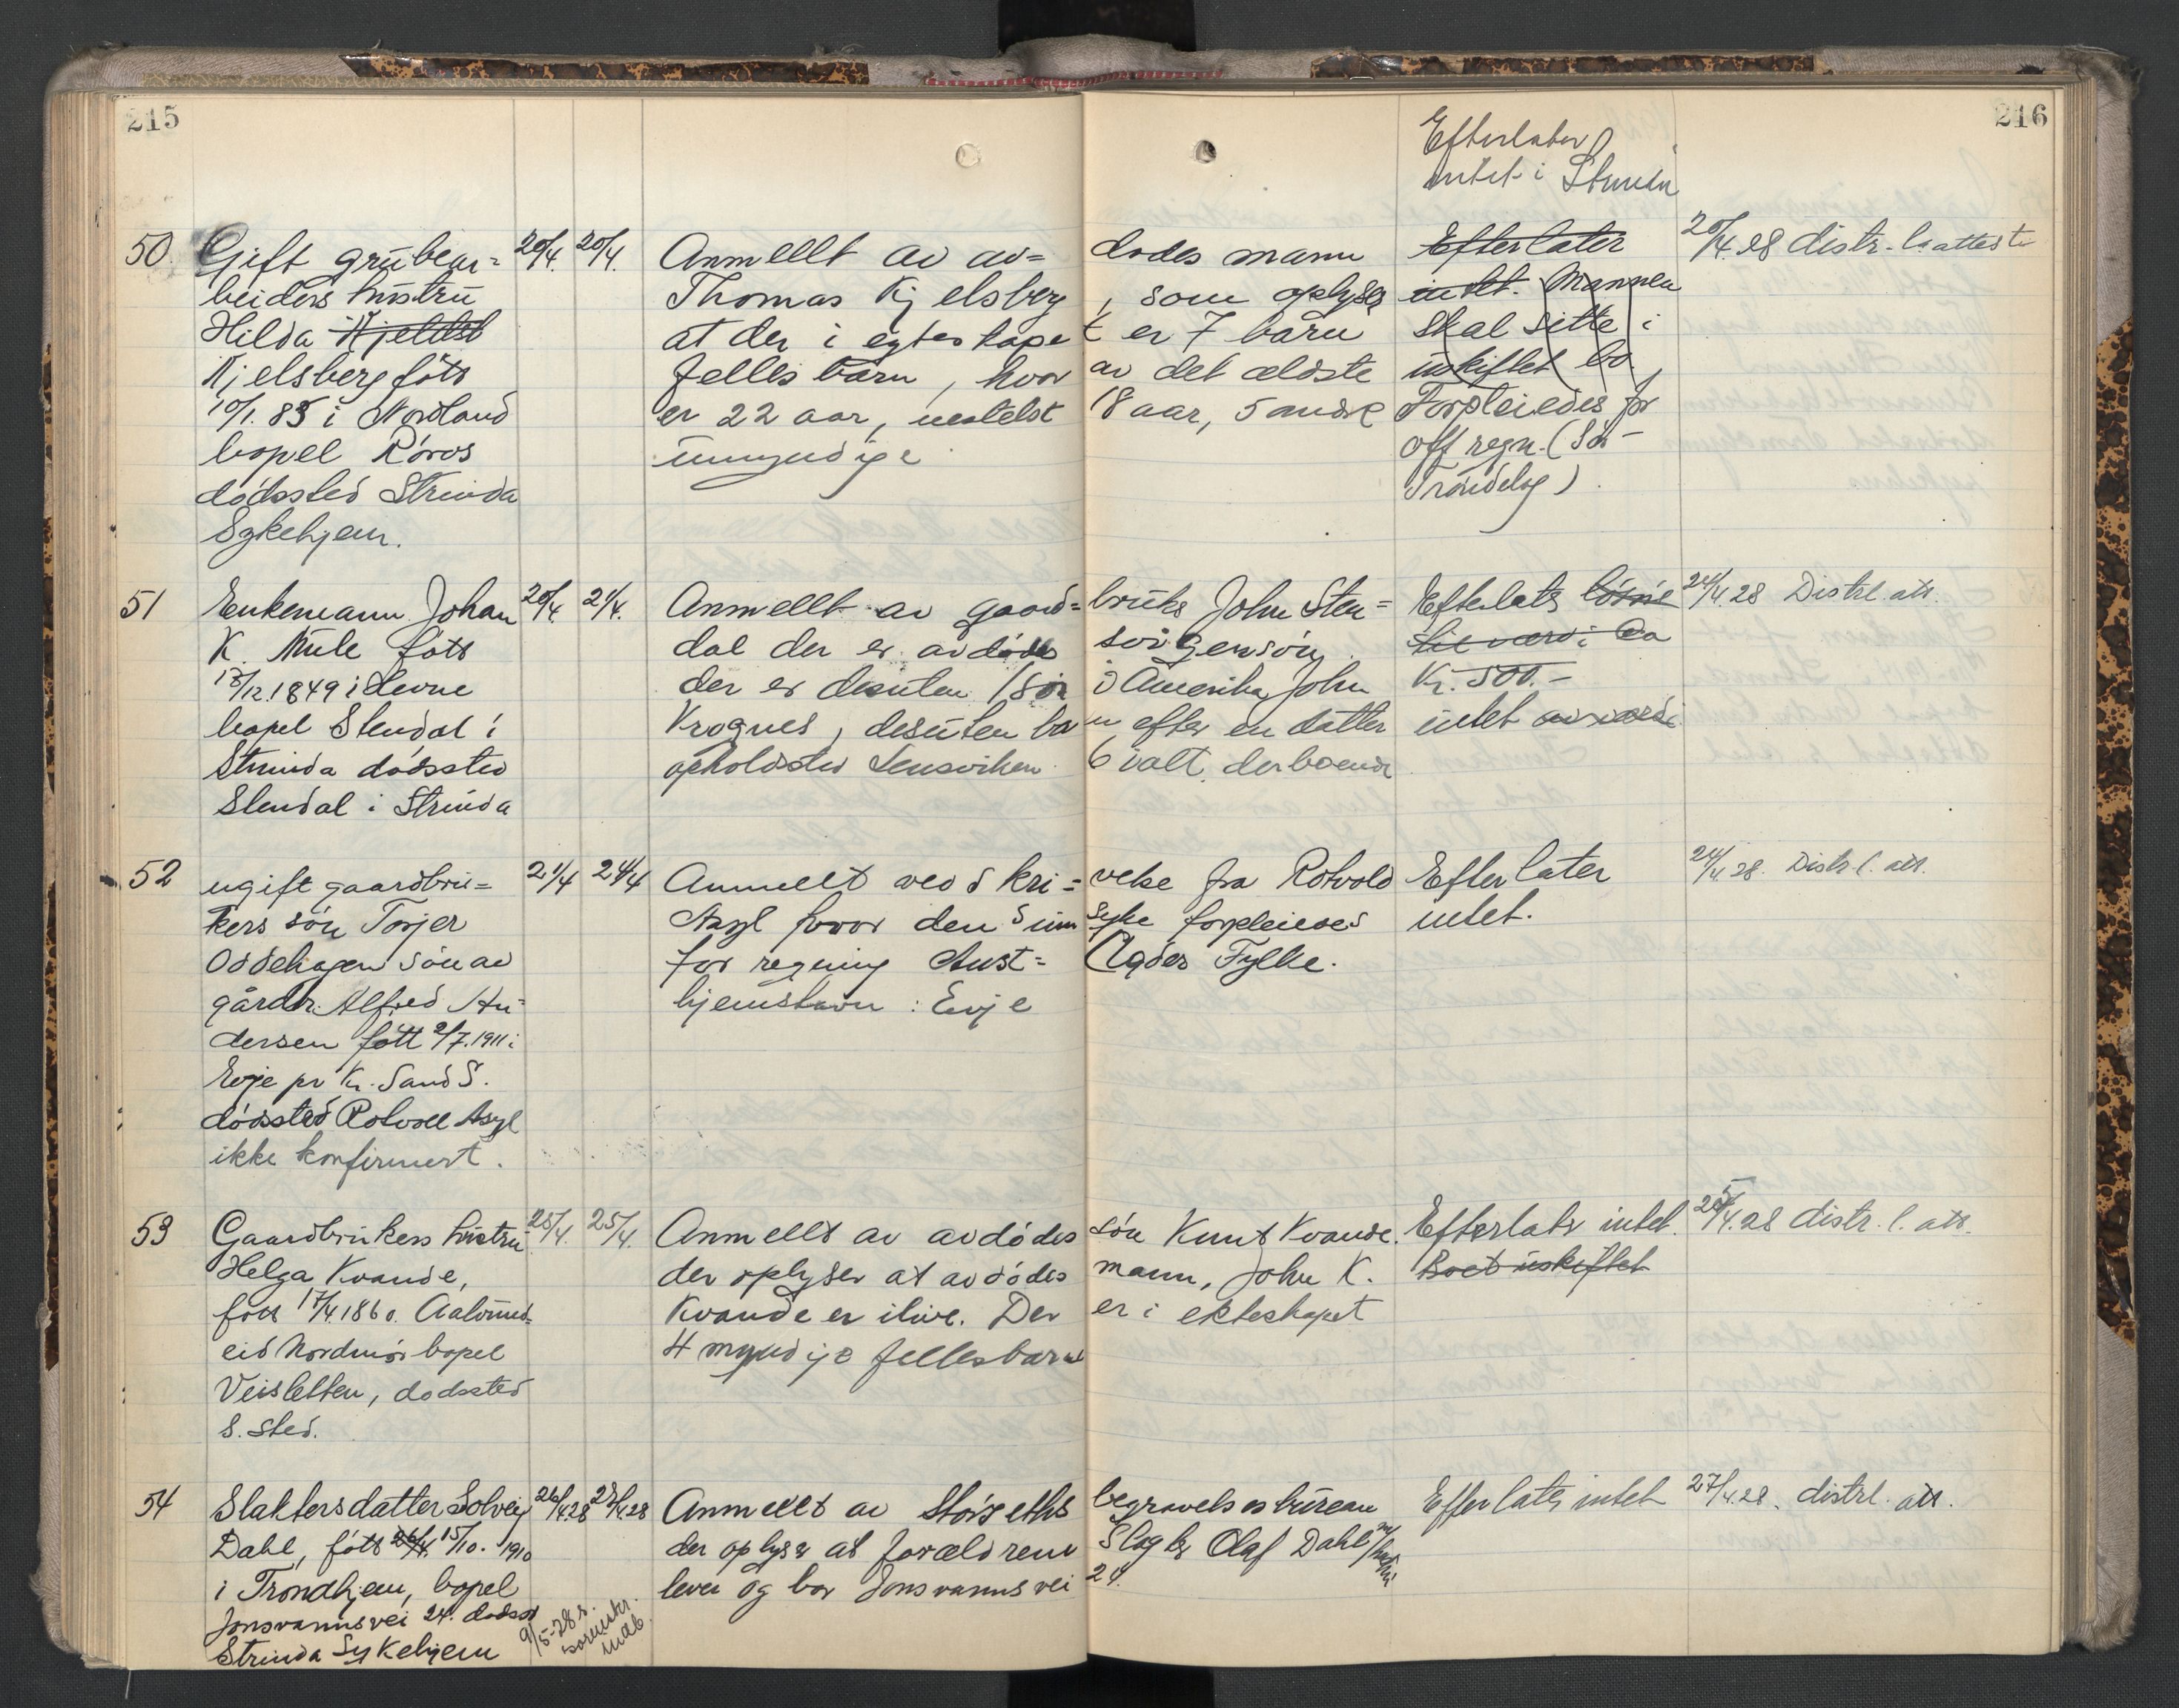 215
216
Efterlater
intet i Strinda
50. Gift grubear= 20/4. 20/4. Anmellt av av= dødes mann Efterlater 20/4.28 distr. l. attest
beiders hustru Thomas Kjelsberg, som oplyser intet. Mannen
Hilda Kjeldsb at der i egteskapet er 7 barn skal sitte i
Kjelsberg født felles barn, hvor av det ældste uskiftet bo,
10/1. 85 i Nordland er 22 aar, nestelst 18 aar, 5 andre Forpleiedes for
bopel Röros umyndige off regn. (Sör-
dødssted Strinda Tröndelag).
Sykehjem.
51 Enkemann Johan 20/4. 21/4. Anmellt av gaard= bruker John Sten= Efterlater løsøre 24/4.28 Distrl. att.
K. Mule født dal der er avdødes svigersön til verdi Ca
13/12.1849 i Hevne der er desuten 1 sön i Amerika John Kr. 500.-
bopel Stendal i Krognes, desuten barn efter en datter intet av værdi
Strinda dødssted opholdssted Lensviken 6 ialt. derboende
Stendal i Strinda
52 ugift gaardbru= 21/4 24/4 Anmellt ved skri= velse fra Rotvold Efterlater 24/4.28. Distr l. att.
kers sön Torjer Asyl hvor den sinnsyke forpleiedes intet.
Oddehagen sön av for regning Aust= Agder Fylke.
gårdbr. Alfred An= hjemstavn: Evje
dersen født 2/7.1911 i
Evje pr Kr. Sand S.
dødssted Rotvoll Asyl
ikke konfirmert.
53 Gaardbrukers hustru 25/4. 25/4. Anmellt av avdødes sön Knut Kvande. Efterlater intet. 25/4.28 distr. l. att.
Helga Kvande, der oplyser at avdødes mann, John K. Boet uskiftet
født 17/4.1860. Aalvund= Kvande er ilive. Der er i ekteskapet
eid Nordmör bopel 4 myndige fellesbarn
Veisletten, dødssted
s. sted.
54 Slaktersdatter Solveig 26/4.28 27/4.28 Anmellt av Storseths begravelsesbureau Efterlater intet 27/4.28. distrl. att.
Dahl, født 26/4. 15/10. 1910 der oplyser at forældrene Slagter Olaf Dahl m/hustru
i Trondhjem, bopel lever og bor Jonsvannsvei 24.
Jonsvannsvei 24. dødssd
Strinda Sykehjem 9/5-28 s.